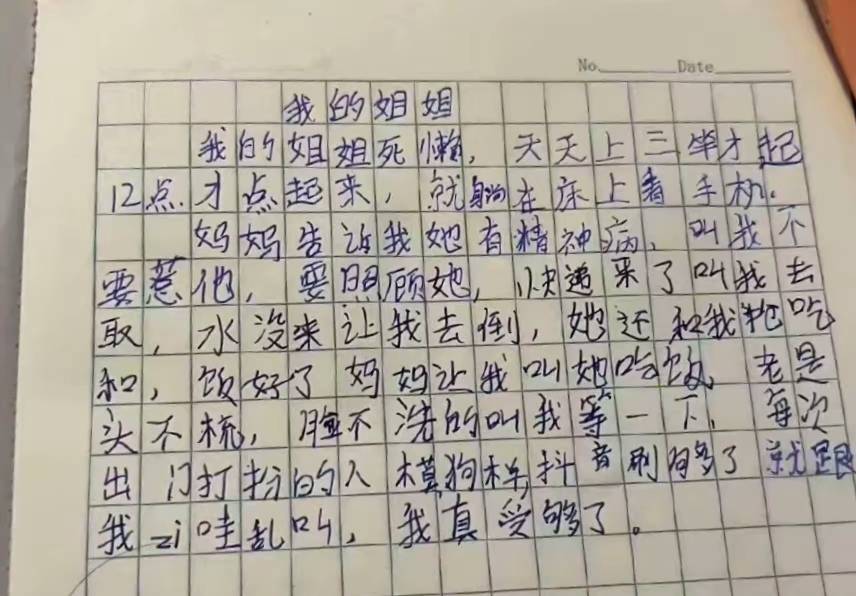 No. Date
我的姐姐
我的姐姐死懒，天天上三竿才起
12点才点起来，就躺在床上看手机.
妈妈告诉我她有精神病，叫我不
要惹他，要照顾她，快递来了叫我去
取，水没来让我去倒，她还和我抢吃
和，饭好了妈妈让我叫她吃饭，老是
头不梳，脸不洗的叫我等一下，每次
出门打扮的人模狗样，抖音刷多了就跟
我zi哇乱叫，我真受够了。